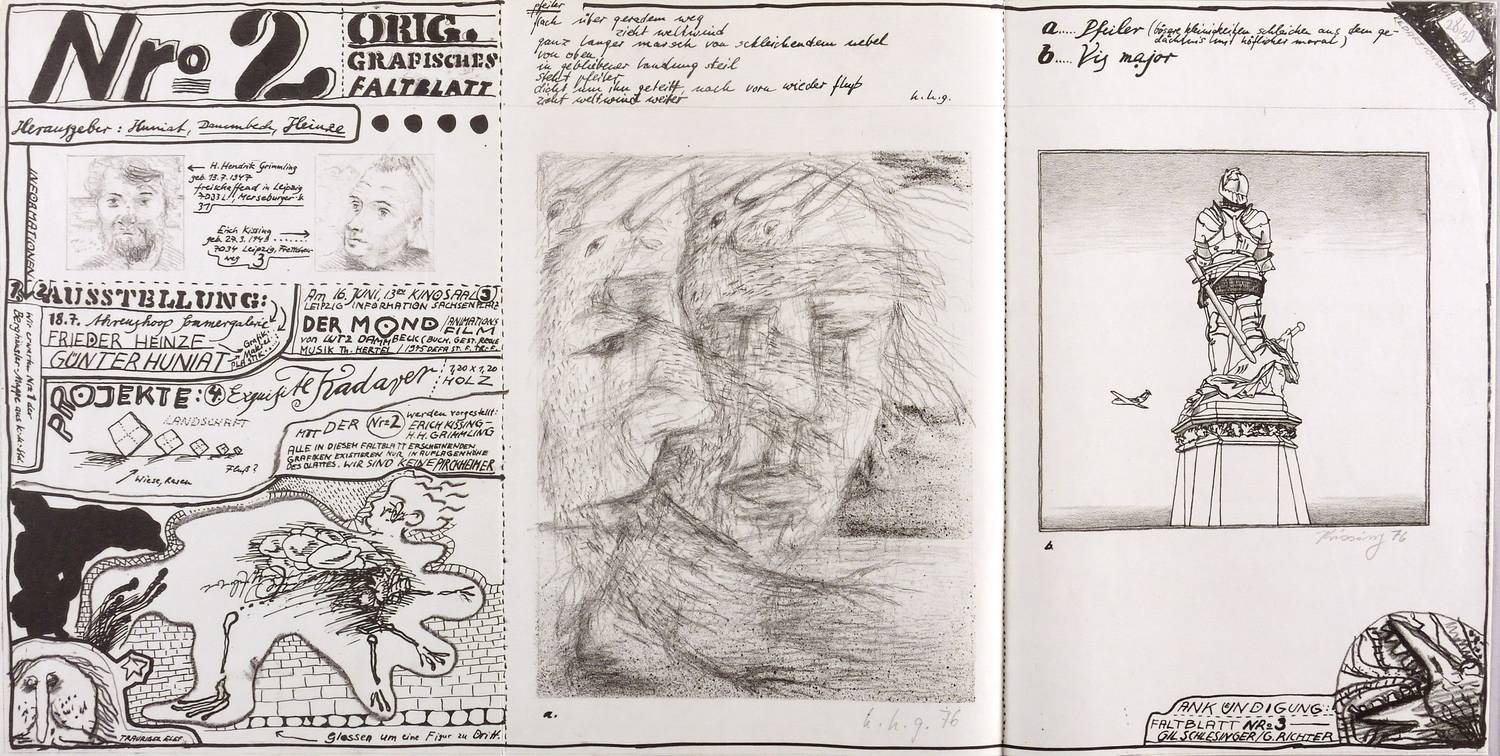 Nr. 2
ORIG.
GRAFISCHES
FALTBLATT
Herausgeber: Huniat, Dammbeck, Heinze
INFORMATIONEN
H. Hendrik Grimmling
geb. 13.7.1947
freischaffend in Leipzig
7033 L., Merseburger
31
Erich Kissing
7034 Leipzig,
weg 3
AUSSTELLUNG:
18.7. Ahrenshoop Sommergalerie
FRIEDER HEINZE
GÜNTER HUNIAT
Grafik
PLASTIK
Am 16. JUNI, KINOSAAL
LEIPZIG-INFORMATION SACHSENPLATZ
DER MOND ANIMATIONS
FILM
von LUTZ DAMMBECK (BUCH, GEST. REGIE
MUSIK TH. HERTEL / 1975 DEFA ST. F. TR.-F.
wir erwarten Nr. 1 der
PROJEKTE: 4. Exquisite Kadaver
1,20 x 1,20
HOLZ
LANDSCHAFT
Fluß?
Wiese, Rasen
MIT DER Nr. 2 werden vorgestellt:
ERICH KISSING-
H.H. GRIMMLING
ALLE IN DIESEM FALTBLATT ERSCHEINENDEN
GRAFIKEN EXISTIEREN NUR IN AUFLAGENHÖHE
DES BLATTES. WIR SIND KEINE PIRCKHEIMER
TRAURIGER REST
Glossen um eine Figur zu Dritt.
pfeiler
flach über geradem weg
zieht weltwind
ganz langer marsch von schleichendem nebel
von oben
in gebliebener landung steil
steht pfeiler
dicht um ihn geteilt, nach vorn wieder fluß
zieht weltwind weiter
h.h.g.
a.
h.h.g. 76
a..... Pfeiler (bösere kleinigkeiten schleichen aus dem ge-
dächtnis mit höflicher moral)
b..... Vis major
b.
Kissing 76
ANKÜNDIGUNG:
FALTBLATT NR. 3
GIL SCHLESINGER/G. RICHTER